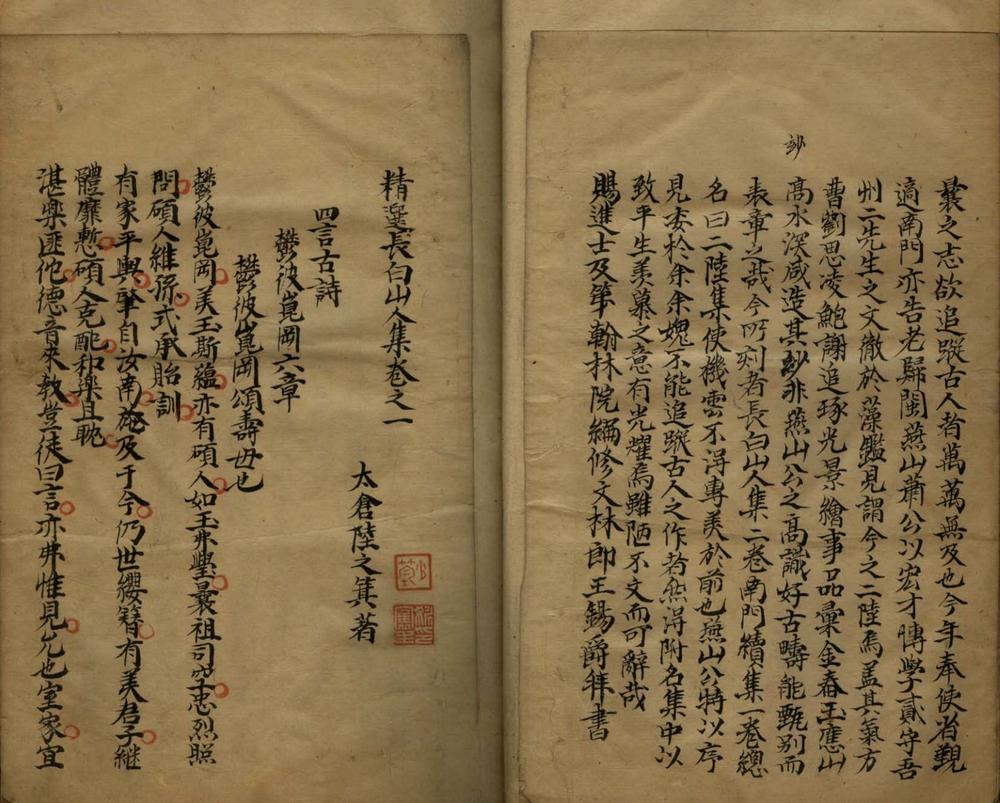 曩之志欲追蹤古人者萬萬無及也今年奉使省覲
適南門亦告老歸閩燕山蕭公以宏才博學貳守吾
州二先生之文徹於藻鑑見謂今之二陸焉盖其氣方
曹劉思凌鮑謝追琢光景繪事品彙金舂玉應山
高水深咸造其玅非燕山公之高識好古疇能甄别而
表章之哉今所刻者長白山人集二卷南門續集一卷總
名曰二陸集使機雲不淂專美於前也燕山公特以序
見委於余余媿不能追蹤古人之作者然淂附名集中以
致平生羙慕之意有光耀焉雖陋不文而可辭哉
賜進士及第翰林院編修文林郎王錫爵拜書
玅
精選長白山人集卷之一
太倉陸之箕著
四言古詩
鬱彼崑岡六章
鬱彼崑岡頌壽母也
鬱彼崑岡美玉斯蘊亦有碩人如玉弗舋曩祖司空忠烈照
問碩人維孫式承貽訓
有家平輿肇自汝南施及于今仍世纓簪有美君子継
體靡慙碩人克配和樂且耽
湛樂匪他德音來教豈徒曰言亦弗惟見允也室家宜